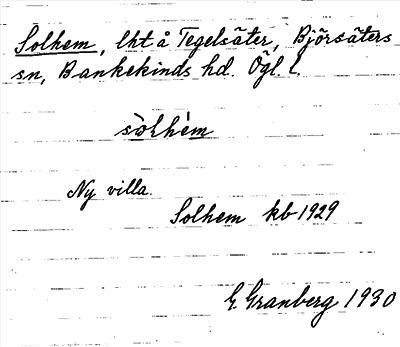 Solhem, lht å Tegelsäter, Björsäters
sn, Bankekinds hd. Ögl. l.
sòlhèm
Ny villa.
Solhem kb 1929
G. Granberg 1930